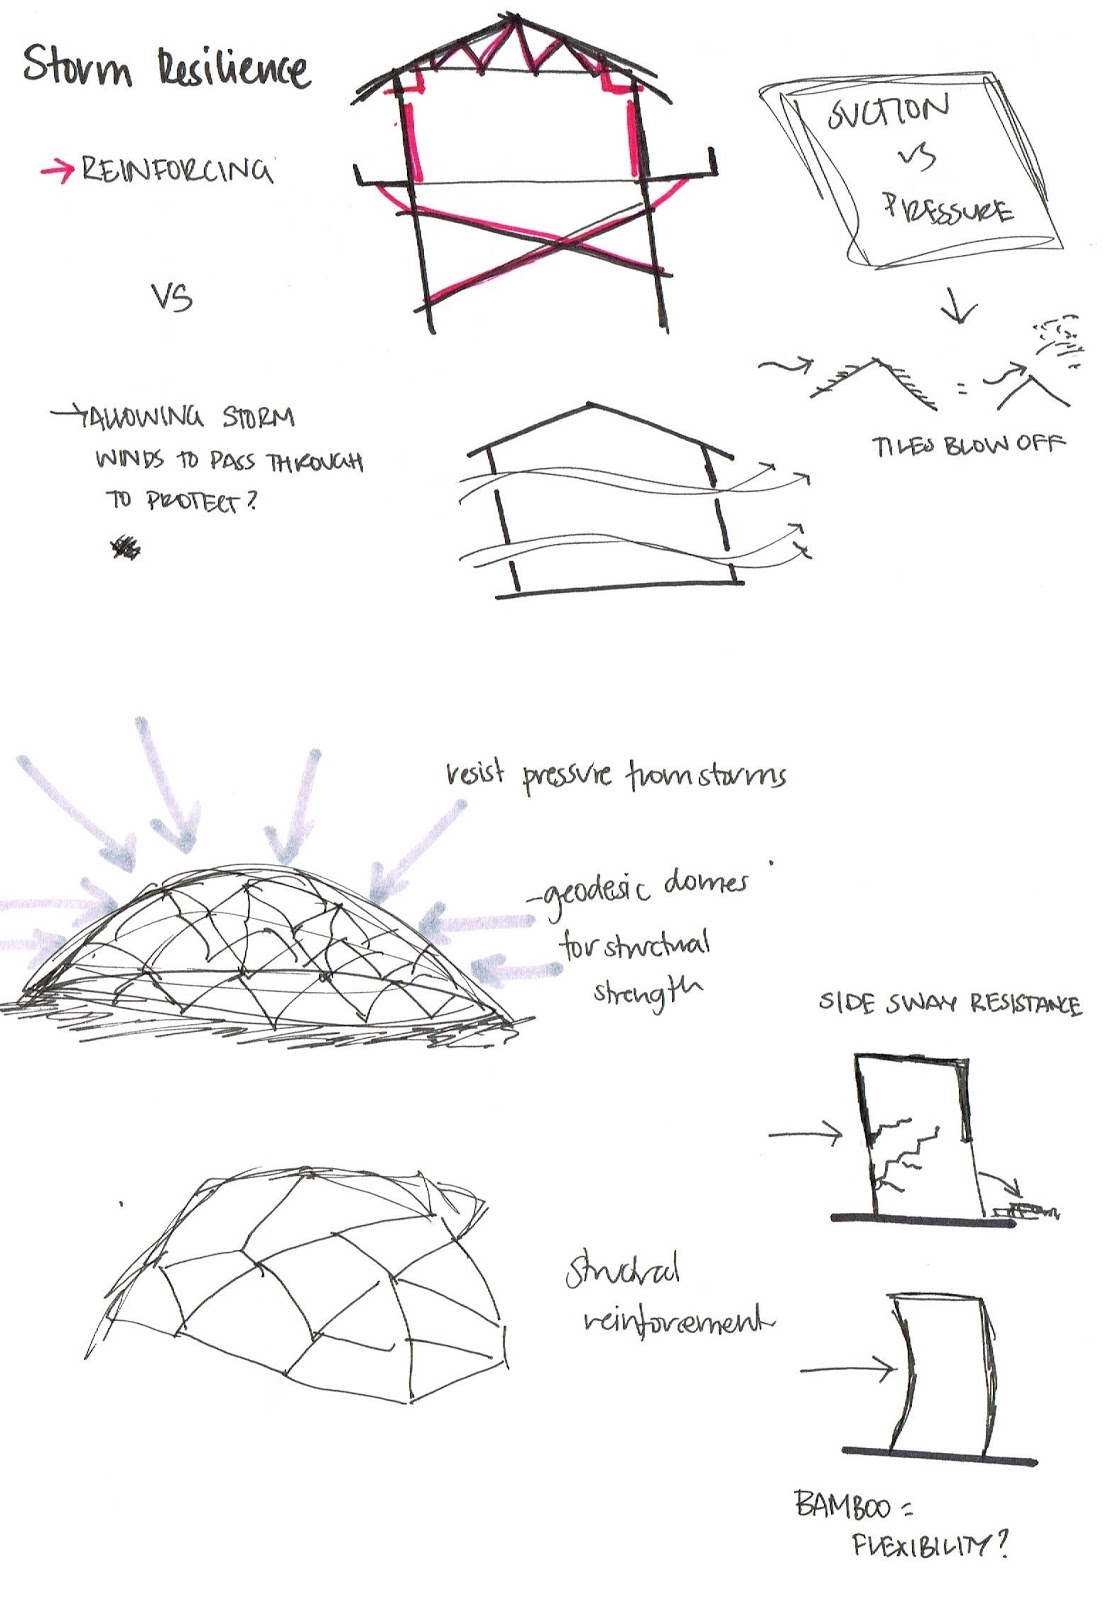 Storm Resilience
→ REINFORCING
VS
→ ALLOWING STORM
WINDS TO PASS THROUGH
TO PROTECT?
SUCTION
VS
PRESSURE
=
TILES BLOW OFF
resist pressure from storms
- geodesic domes
for structural
strength
SIDE SWAY RESISTANCE
Structural
reinforcement
BAMBOO =
FLEXIBILITY?